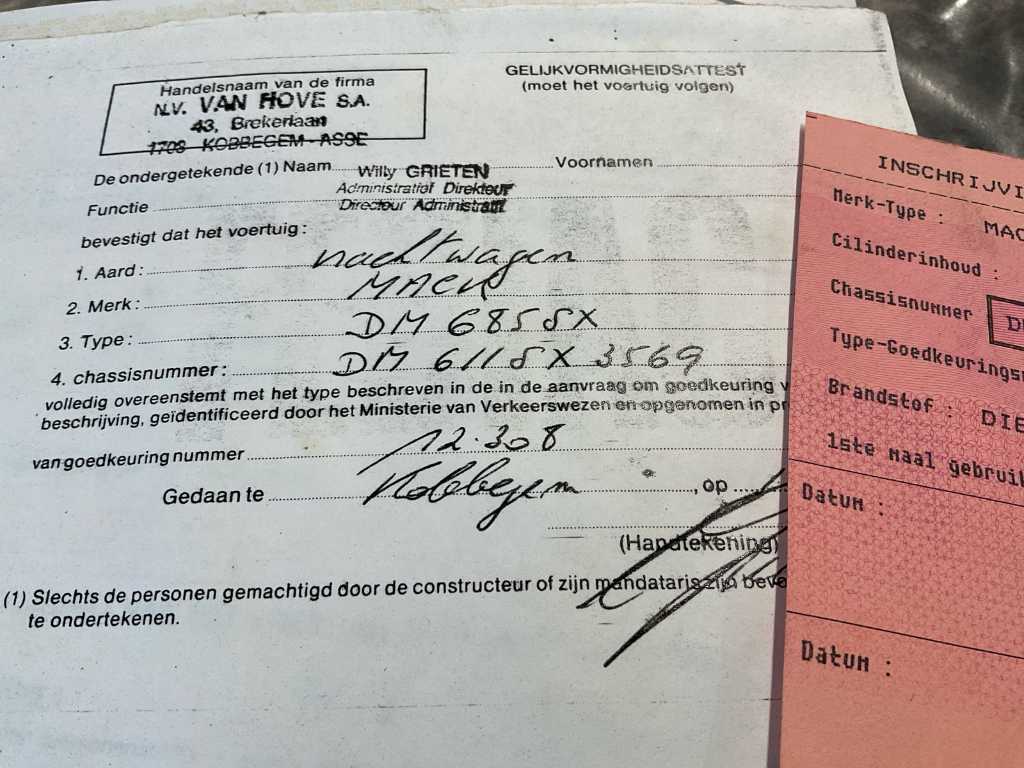 Handelsnaam van de firma
N.V. VAN HOVE S.A.
43, Brekerlaan
1708 KOBBEGEM - ASSE
GELIJKVORMIGHEIDSATTEST
(moet het voertuig volgen)
De ondergetekende (1) Naam Willy GRIETEN Voornamen
Administratief Direkteur
Functie Directeur Administratif
bevestigt dat het voertuig :
1. Aard : vrachtwagen
2. Merk : MACK
3. Type : DM 685 SX
4. chassisnummer : DM 611 SX 3569
volledig overeenstemt met het type beschreven in de in de aanvraag om goedkeuring v
beschrijving, geïdentificeerd door het Ministerie van Verkeerswezen en opgenomen in pr
van goedkeuring nummer 12.308
Gedaan te Kobbegem , op
(Handtekening)
(1) Slechts de personen gemachtigd door de constructeur of zijn mandataris zijn bevo
te ondertekenen.
INSCHRIJVI
Merk-Type : MAC
Cilinderinhoud :
Chassisnummer D
Type-Goedkeurings
Brandstof : DIE
1ste maal gebruik
Datum :
Datum :